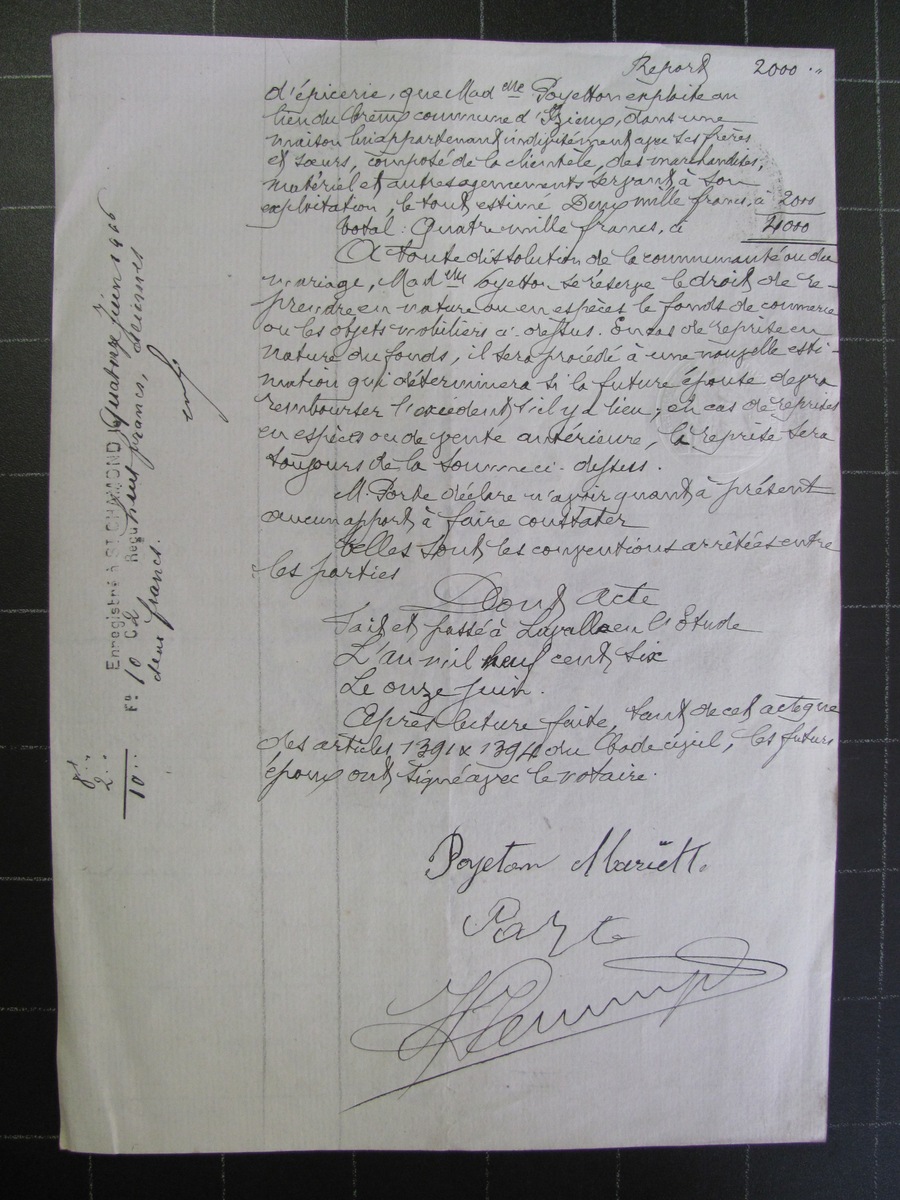 Report 2000 "
d'épicerie, que Mad elle Poyetton exploite au
lieu du Creux commune d'Izieux, dans une
maison lui appartenant indivisément avec ses frères
et sœurs, composé de la clientèle, des marchandises,
matériel et autres agencements servant à son
exploitation, le tout estimé Deux mille francs, ci 2000
total: Quatre mille francs, ci 4000
A toute dissolution de la communauté ou du
mariage, Mad elle Poyetton se réserve le droit de re-
prendre en nature ou en espèces le fonds de commerce
ou les objets mobiliers ci-dessus. En cas de reprise en
nature du fonds, il sera procédé à une nouvelle esti-
mation qui déterminera si la future épouse devra
rembourser l'excédent, s'il y a lieu; en cas de reprises
en espèces ou de vente antérieure, la reprise sera
toujours de la somme ci-dessus.
M. Porte déclare n'avoir quant à présent
aucun apport à faire constater
Telles sont les conventions arrêtées entre
les parties
Dont acte
Fait et passé à Lavalla en l'Etude
L'an mil neuf cent six
Le onze juin.
Après lecture faite, tant de cet acte que
des articles 1391 & 1394 du Code civil, les futurs
époux ont signé avec le notaire.
Poyeton Mariett.
Porte
Enregistré à ST CHAMOND, le quatorze juin 1906
Fo 10 Cd Reçu huit francs, décimes
deux francs.
2 "
10 "